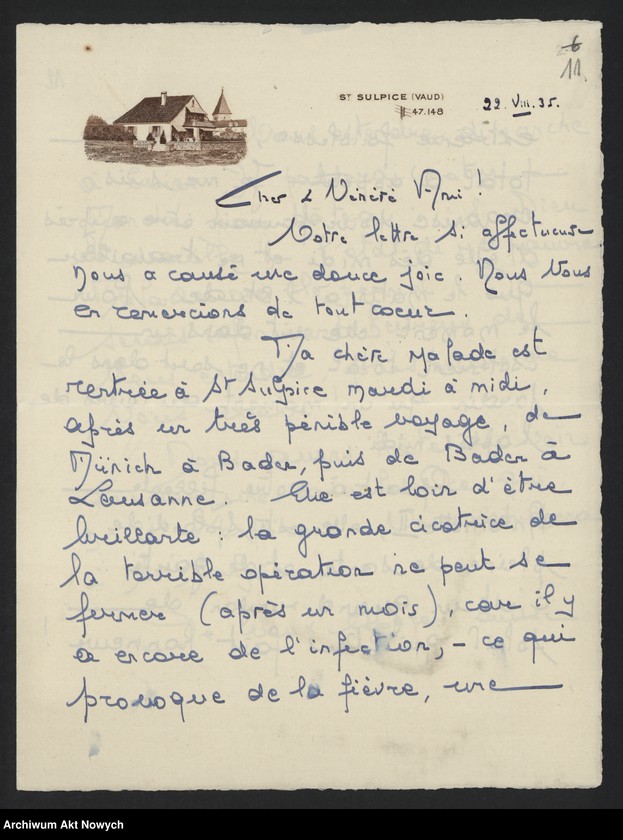 6
11.
ST SULPICE (VAUD)
47.148
22. VIII. 35.
Cher & Vénéré Ami !
Votre lettre si affectueuse
nous a causé une douce joie. Nous Vous
en remercions de tout coeur.
Ma chère malade est
rentrée à St Sulpice mardi à midi,
après un très pénible voyage, de
Münich à Baden, puis de Baden à
Lausanne. Elle est loin d'être
brillante : la grande cicatrice de
la terrible opération ne peut se
fermer (après un mois), car il y
a encore de l'infection, – ce qui
provoque de la fièvre, une
Archiwum Akt Nowych